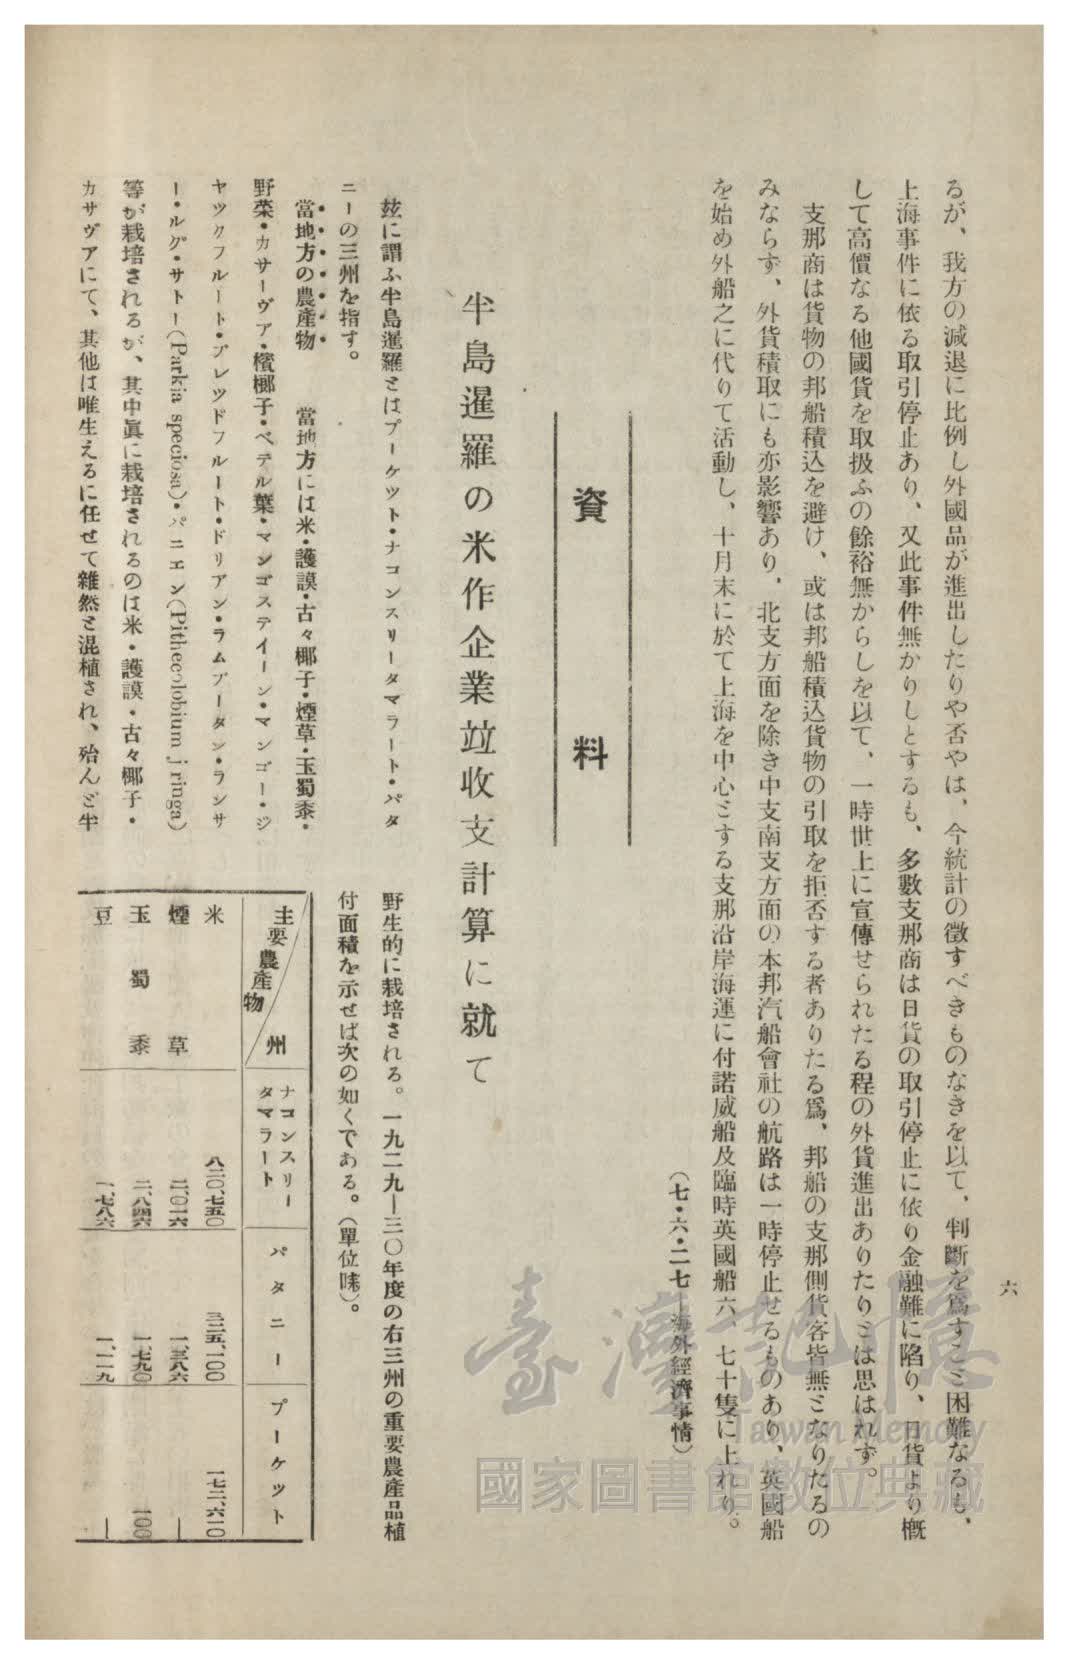 六
るが、我方の減退に比例し外國品が進出したりや否やは、今統計の徴すべきものなきを以て、判斷を爲すこと困難なるも、
上海事件に依る取引停止あり、又此事件無かりしとするも、多數支那商は日貨の取引停止に依り金融難に陷り、日貨より槪
して高價なる他國貨を取扱ふの餘裕無からしを以て、一時世上に宣傳せられたる程の外貨進出ありたりとは思はれず。
支那商は貨物の邦船積込を避け、或は邦船積込貨物の引取を拒否する者ありたる爲、邦船の支那側貨客皆無となりたるの
みならず、外貨積取にも亦影響あり、北支方面を除き中支南支方面の本邦汽船會社の航路は一時停止せるものあり、英國船
を始め外船之に代りて活動し、十月末に於て上海を中心とする支那沿岸海運に付諾威船及臨時英國船六、七十隻に上れり。
(七・六・二七—海外經濟事情)
資料
半島暹羅の米作企業竝收支計算に就て
玆に謂ふ半島暹羅とはプーケット・ナコンスリータマラート・パタ
ニーの三州を指す。
當地方の農產物 當地方には米・護謨・古々椰子・煙草・玉蜀黍・
野菜・カサーヴア・檳榔子・ベテル葉・マンゴステイーン・マンゴー・ジ
ヤツクフルート・ブレツドフルート・ドリアン・ラムブータン・ランサ
ー・ルグ・サトー(Parkia speciosa)・パニエン(Pithecolobium jiringa)
等が栽培されるが、其中眞に栽培されるのは米・護謨・古々椰子・
カサヴアにて、其他は唯生えるに任せて雜然と混植され、殆んど半
野生的に栽培される。一九二九—三〇年度の右三州の重要農產品植
付面積を示せば次の如くである。(單位味)。
主要農產物 州 ナコンスリータマラート パタニー プーケツト
米 八二〇、七五〇 三二五、一〇〇 一七二、六一〇
煙草 二、〇一六 一、三八六 —
玉蜀黍 二、八四六 一、七九〇 一〇〇
豆 一、七八六 一、一一九 —
臺灣記憶
Taiwan Memory
國家圖書館數位典藏